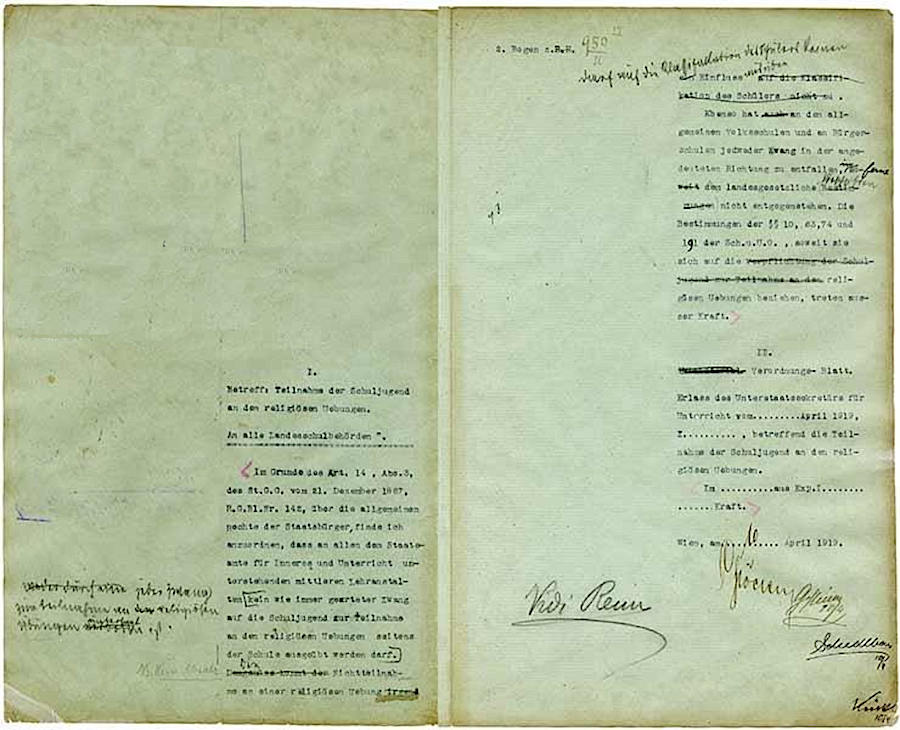 I.
Betreff: Teilnahme der Schuljugend
an den religiösen Uebungen.
An alle Landesschulbehörden ".
Im Grunde des Art. 14 , Abs.3,
des St.G.G. vom 21. Dezember 1867,
R.G.Bl.Nr. 142, über die allgemeinen
Rechte der Staatsbürger, finde ich
anzuordnen, dass an allen dem Staats-
amte für Inneres und Unterricht un-
terstehenden mittleren Lehranstal-
ten kein wie immer gearteter Zwang
auf die Schuljugend zur Teilnahme
an den religiösen Uebungen seitens
der Schule ausgeübt werden darf.
Nichtteilnah-
me an einer religiösen Uebung irgend
jeder Zwang
zur Teilnahme an den religiösen
Übungen
2. Bogen z.B.H. 950
darf auf die Klassifikation des Schülers keinen
Einfluss auf die Klassifi-
kation des Schülers nicht zu .
Ebenso hat auch an den all-
gemeinen Volksschulen und an Bürger-
schulen jedweder Zwang in der ange-
deuteten Richtung zu entfallen,
weit dem landesgesetzliche Bestim-
mungen nicht entgegenstehen. Die
Bestimmungen der §§ 10, 63,74 und
191 der Sch.u.U.O. , soweit sie
sich auf die Verpflichtung der Schul-
jugend zur Teilnahme an den reli-
giösen Uebungen beziehen, treten aus-
ser Kraft.
II.
Verordnungs- Blatt.
Erlass des Unterstaatssekretärs für
Unterricht vom.........April 1919,
Z.......... , betreffend die Teil-
nahme der Schuljugend an den reli-
giösen Uebungen.
Im ..........aus Exp.I........
......Kraft.
Wien, am...10..... April 1919.
Vidi